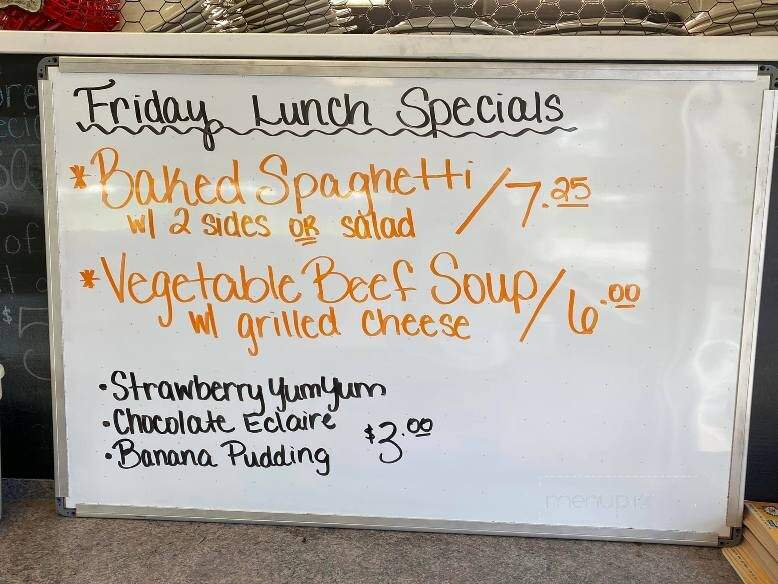 Friday Lunch Specials
*Baked Spaghetti / 7.25
w/ 2 sides OR salad
*Vegetable Beef Soup / 6.00
w/ grilled cheese
•Strawberry YumYum
•Chocolate Eclaire
$3.00
•Banana Pudding